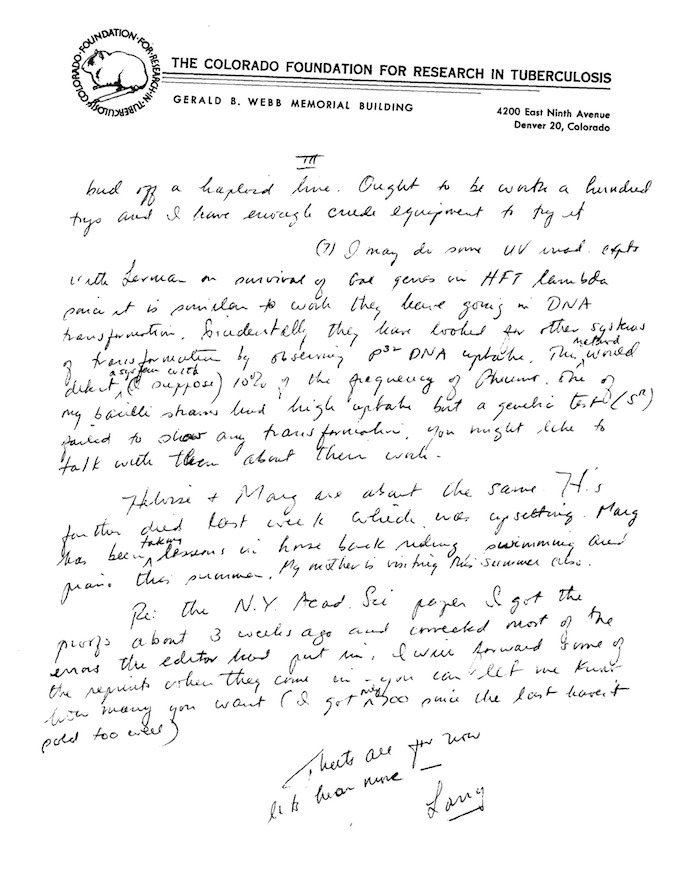 COLORADO·FOUNDATION·FOR·RESEARCH·IN·TUBERCULOSIS
THE COLORADO FOUNDATION FOR RESEARCH IN TUBERCULOSIS
GERALD B. WEBB MEMORIAL BUILDING
4200 East Ninth Avenue
Denver 20, Colorado
III
bud off a haploid line. Ought to be worth a hundred
trys and I have enough crude equipment to try it
(7) I may do some UV irrad. expts
with Lerman on survival of Gal genes in HFT lambda
since it is similar to work they have going in DNA
transformation. Incidentally they have looked for other systems
of transformation by observing P32 DNA uptake. This method would
detect a system with (I suppose) 10% of the frequency of Pneumo. One of
my bacilli strains had high uptake but a genetic test (SR)
failed to show any transformation. you might like to
talk with them about their work.
H & Marg are about the same H's
father died last week which was upsetting. Marg
has been taking lessons in horse back riding, swimming and
piano this summer. My mother is visiting this summer also.
Re: the N.Y. Acad. Sci paper I got the
proofs about 3 weeks ago and corrected most of the
errors the editor had put in. I will forward some of
the reprints when they come in - you can let me know
how many you want (I got only 300 since the last haven't
sold too well)
Thats all for now
lets hear more —
Larry